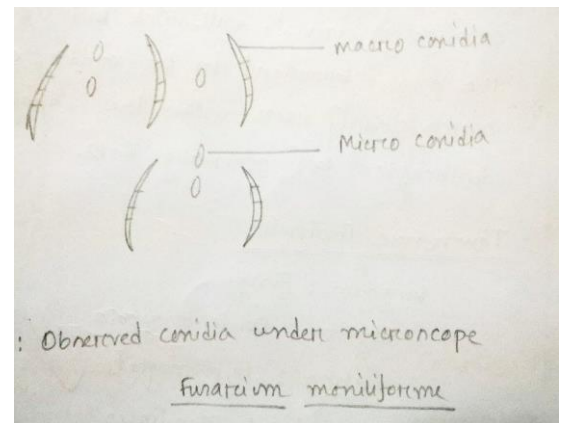 macro conidia
Micro conidia
: Observed conidia under microscope
Fusarium moniliforme